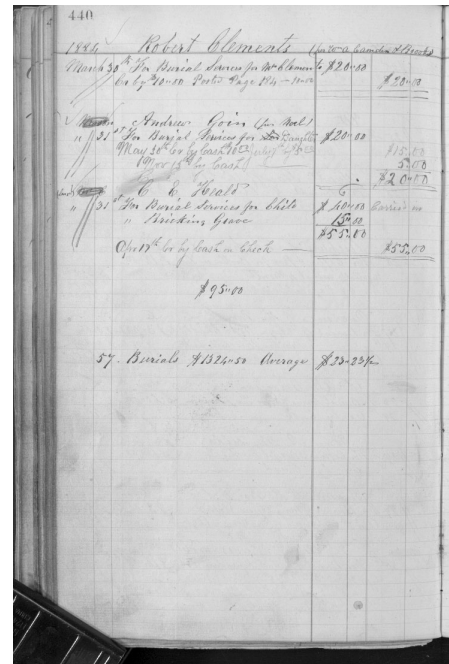 440
1884 Robert Clements
March 30th For Burial Services for Mr Clements $20-00
Cr by $10-00 Posted Page 184 $20-00
Andrew Goin (for Noel)
" 31st For Burial Services for Daughter $20-00
May 30th Cr by Cash $15-00
15th by Cash 5-00
$20-00
C. E. Heald
" 31st For Burial Services for Child $40-00
" Bricking Grave 15-00
$55-00
Apr 17th Cr by Cash in Check $55-00
$95-00
57 - Burials $1324-50 Average $23-23½